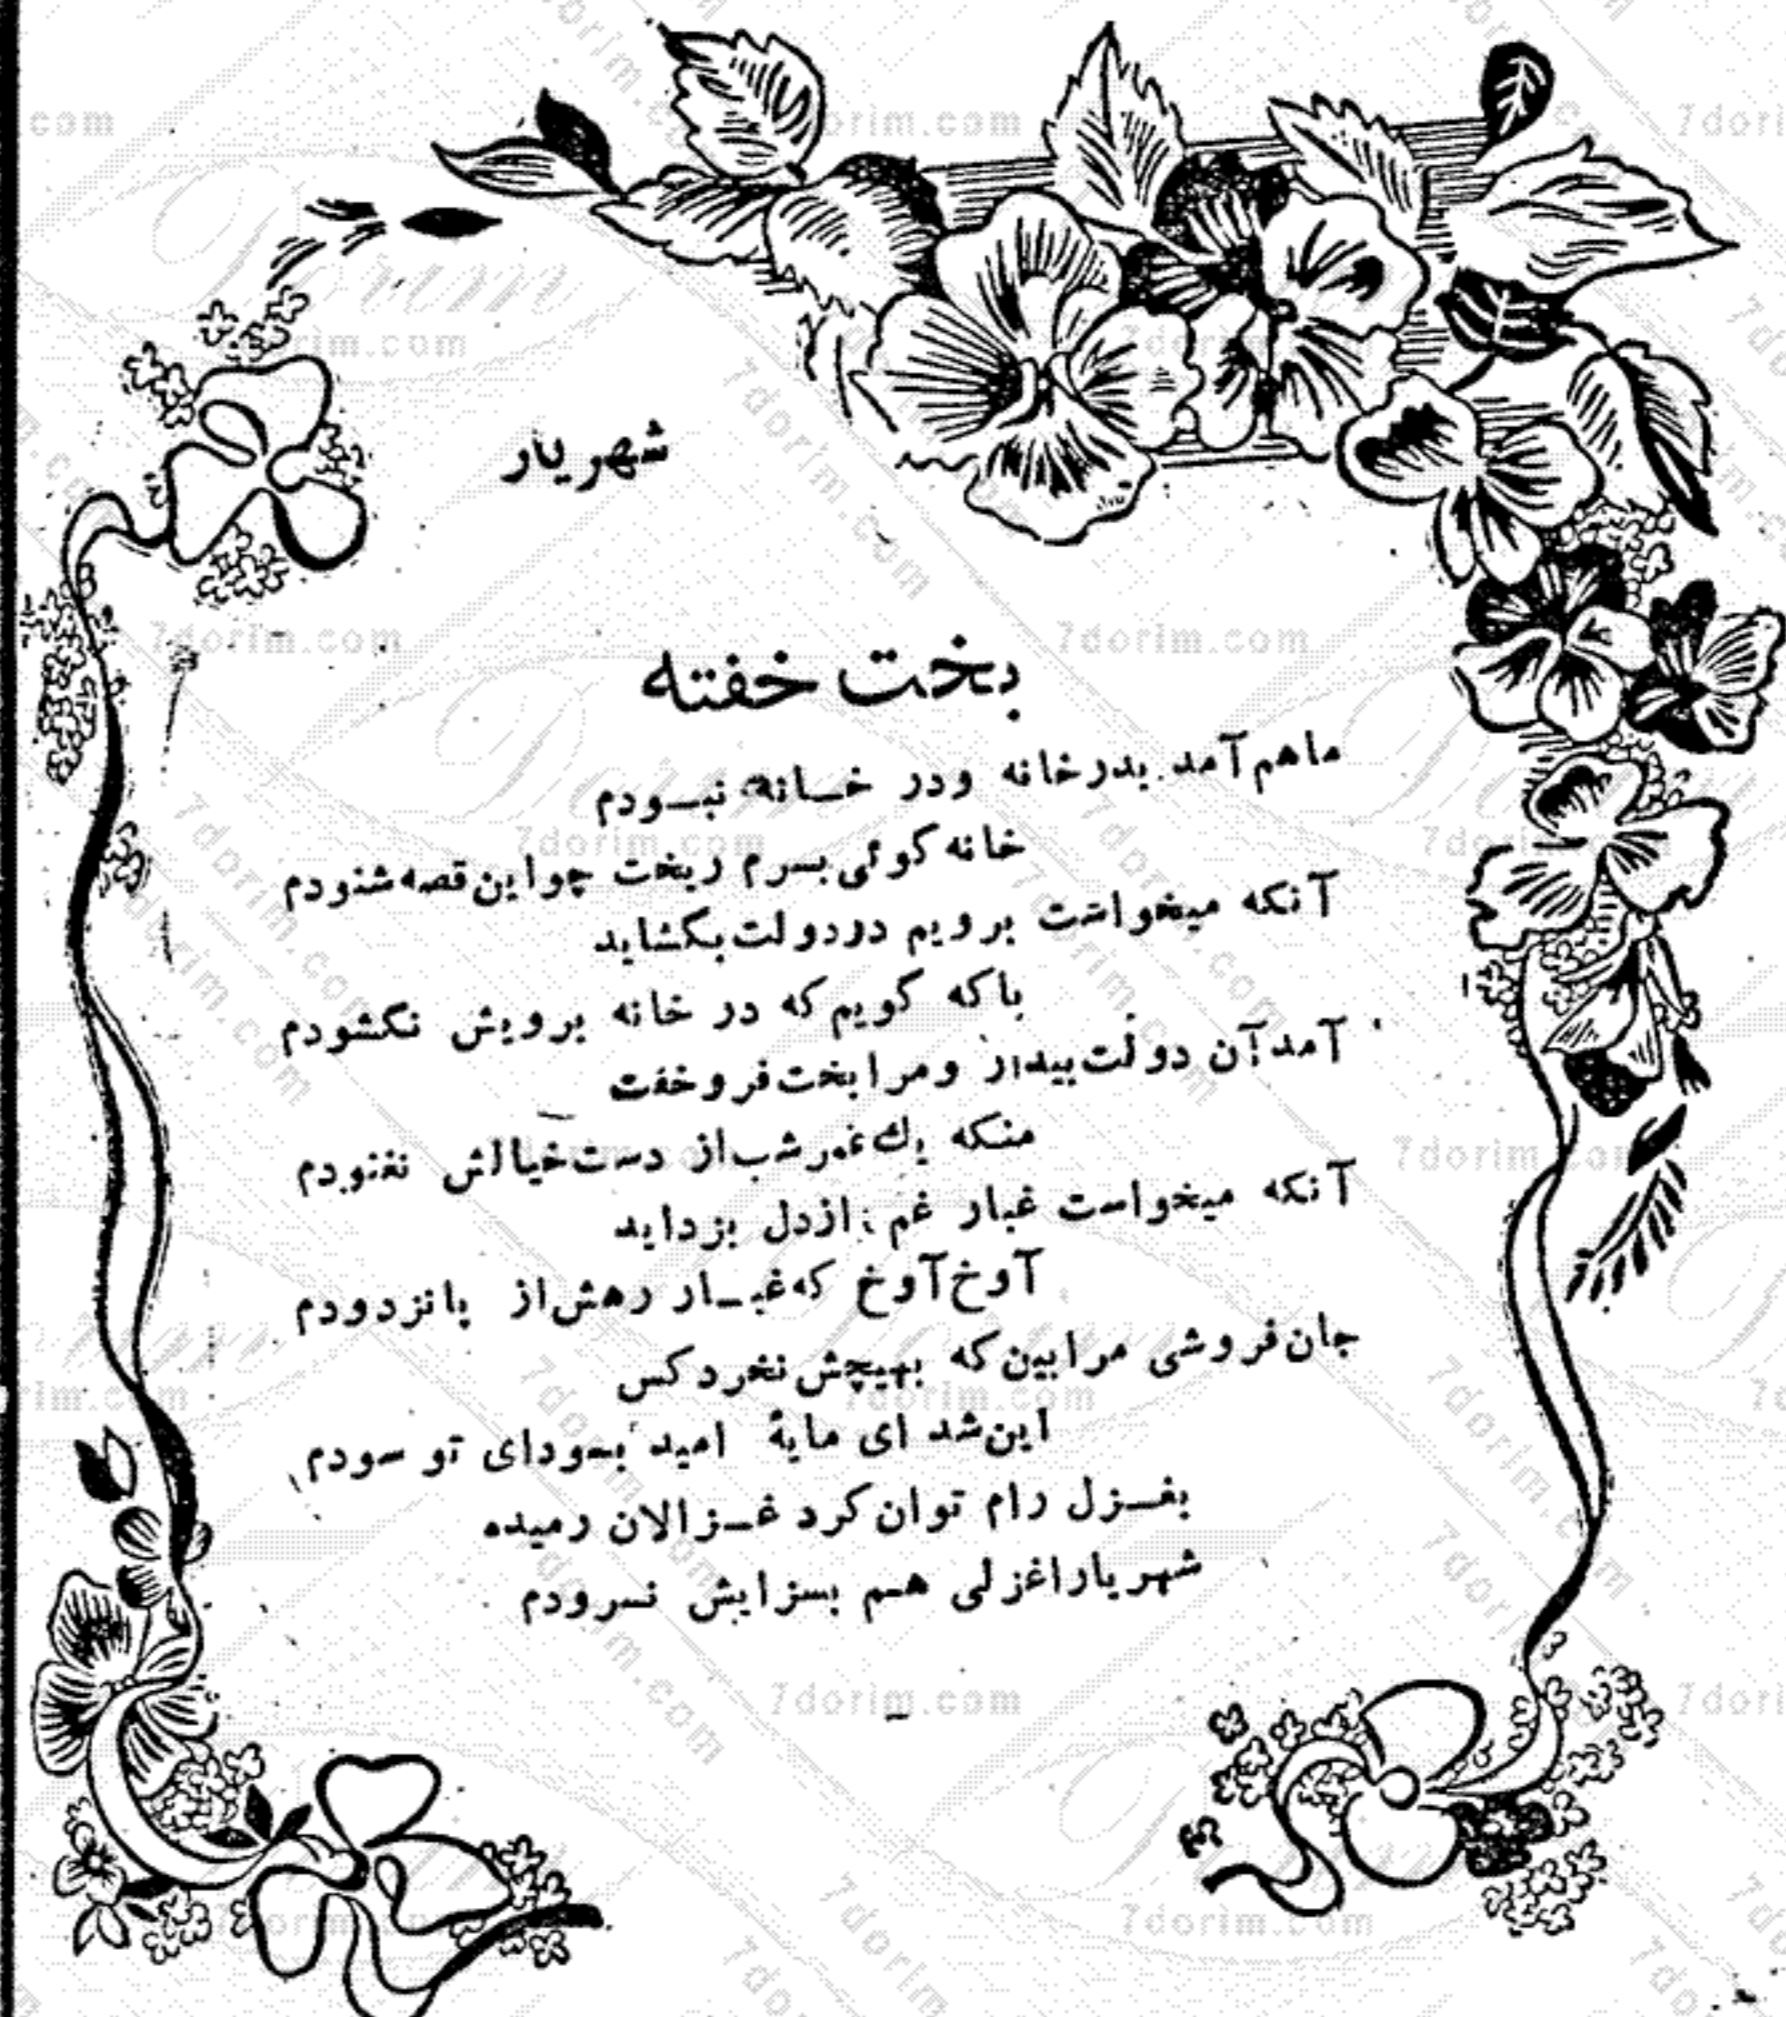 شهریار
بخت خفته
ماهم آمد بدرخانه ودر خانه نبودم
خانه گوئی بسرم ریخت چواین قصه شنودم
آنکه میخواست برویم دردولت بگشاید
باکه گویم که در خانه برویش نگشودم
آمد آن دولت بیدار ومرا بخت فروخفت
منکه یك عمر شب از دست خیالش نغنودم
آنکه میخواست غبار غم ازدل بزداید
آوخ آوخ که غبار رهش از پا نزدودم
جان فروشی مرا بین که بهیچش نخرد کس
این شد ای مایهٔ امید بسودای تو سودم
بغزل رام توان کرد غزالان رمیده
شهریارا غزلی هم بسزایش نسرودم
7dorim.com